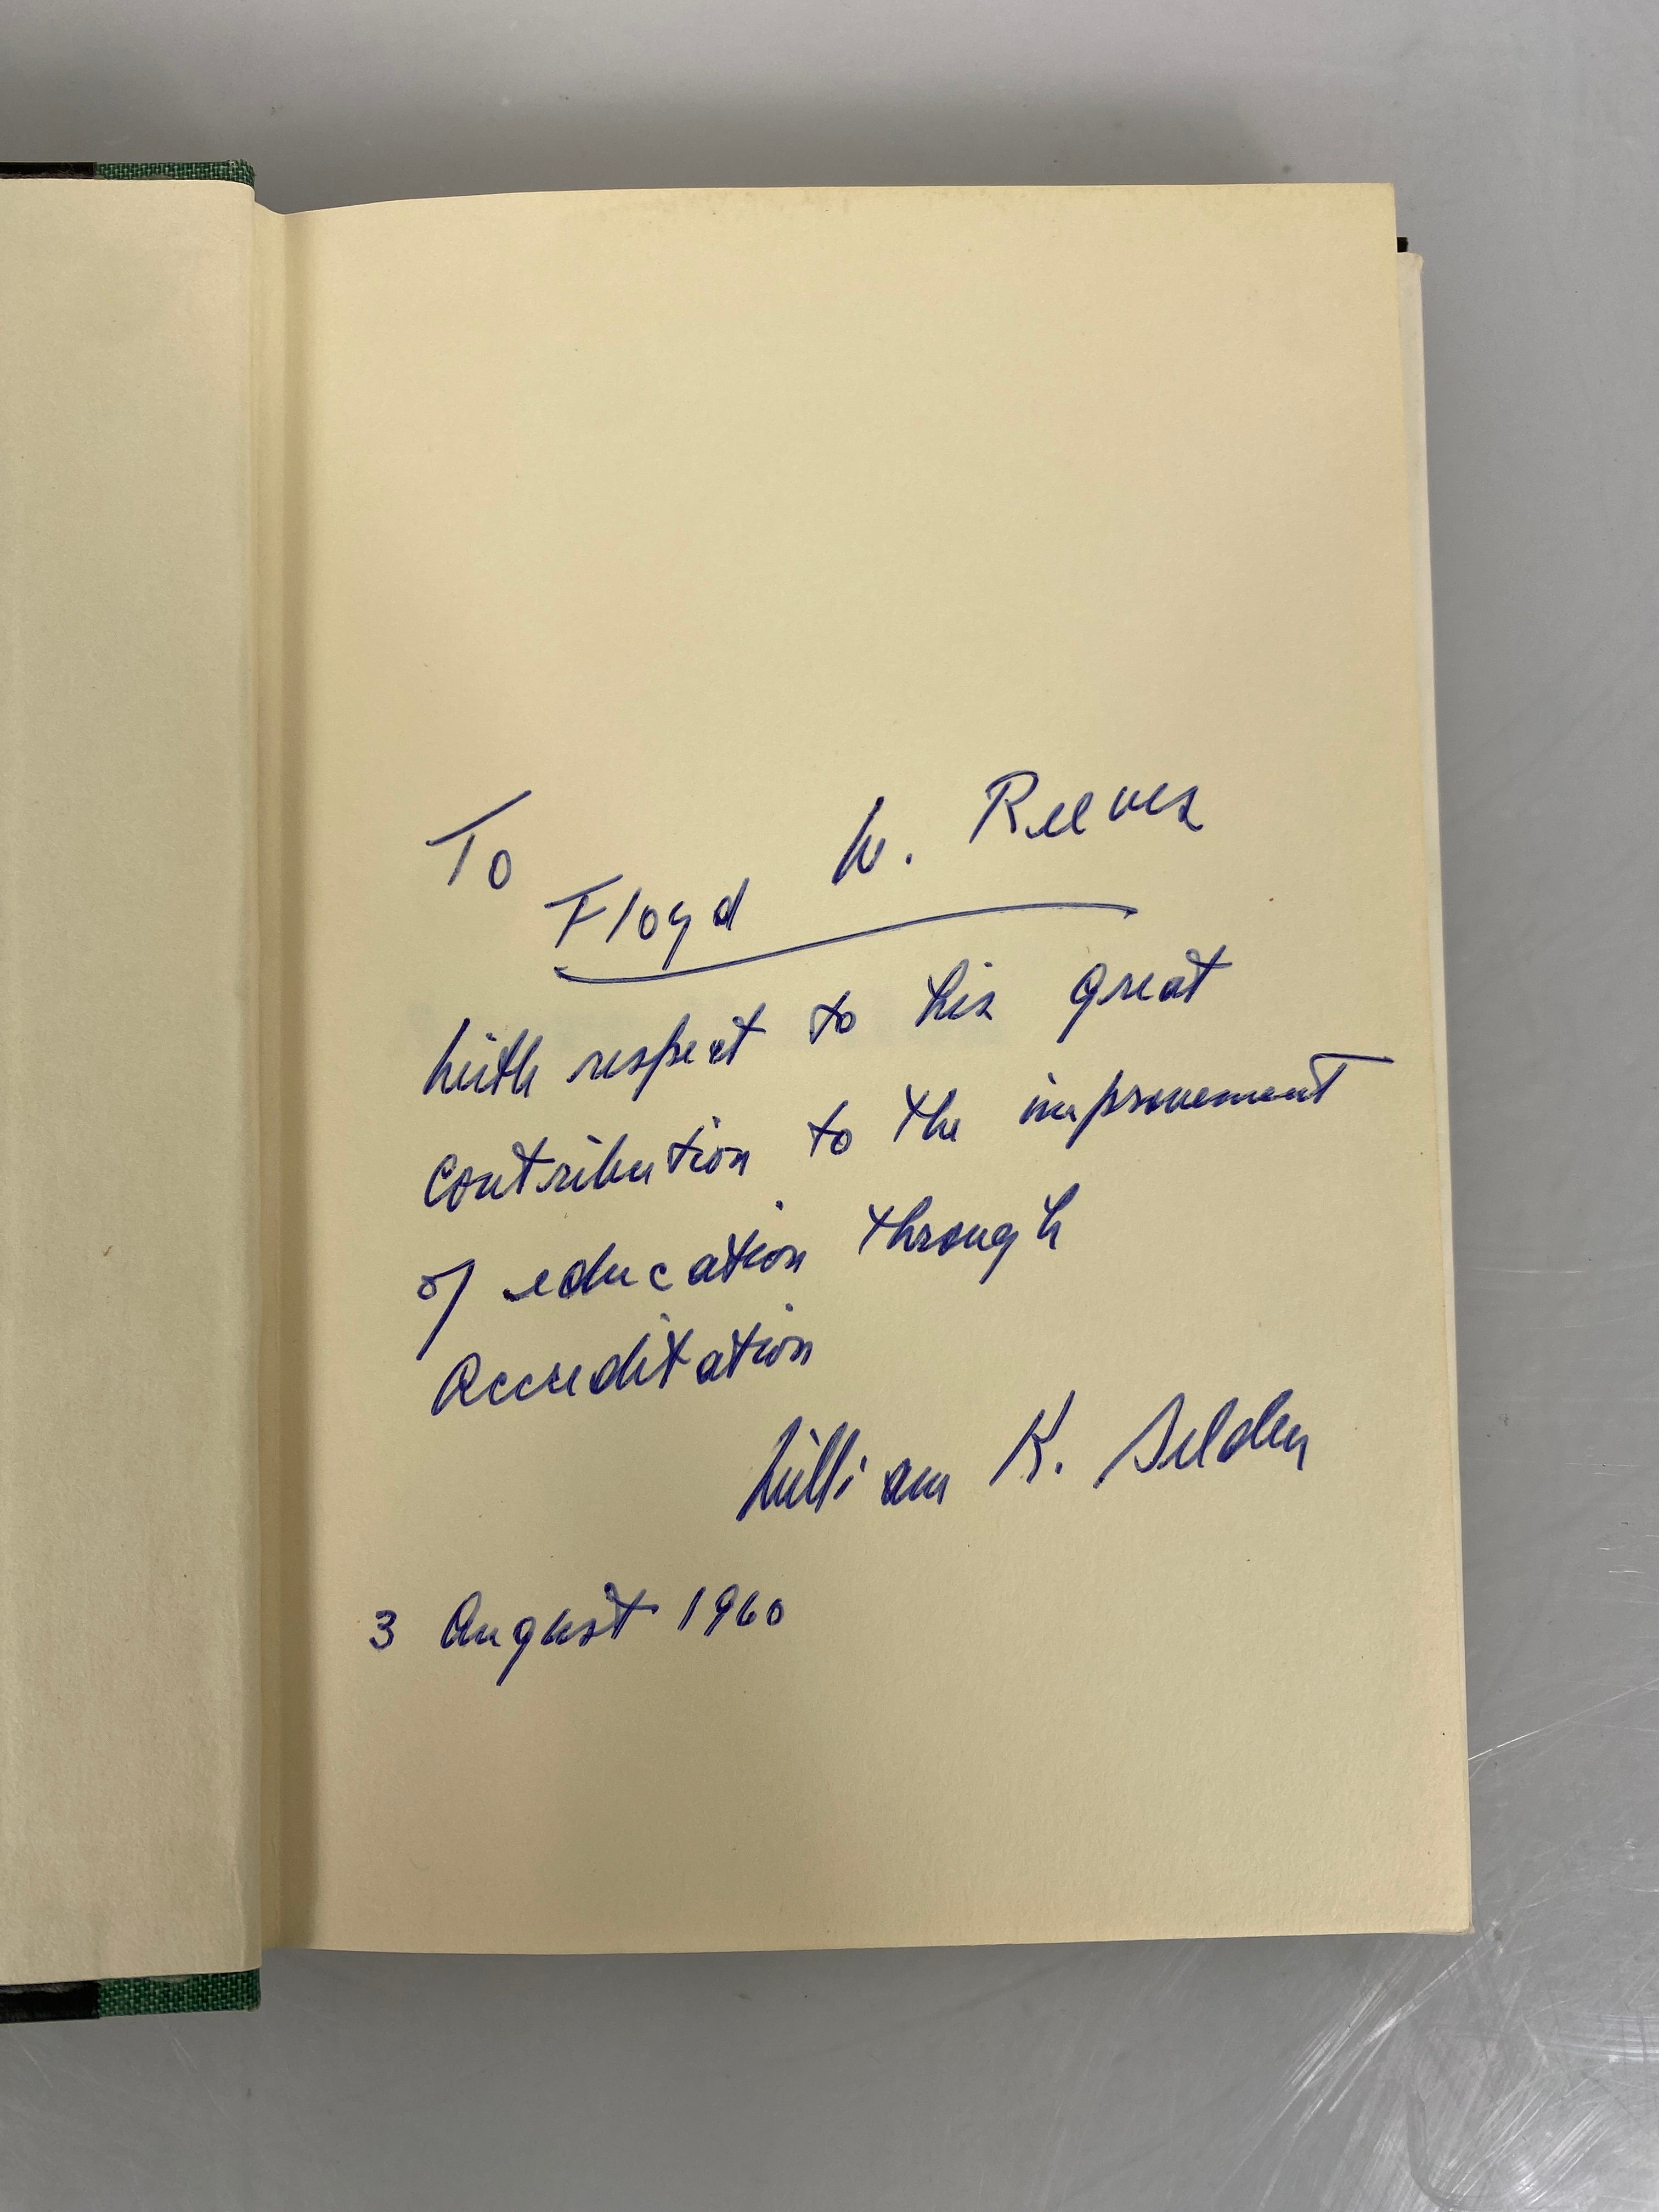 To
Floyd W. Reeves
with respect to his great
contribution to the improvement
of education through
Accreditation
William K. Selden
3 August 1960